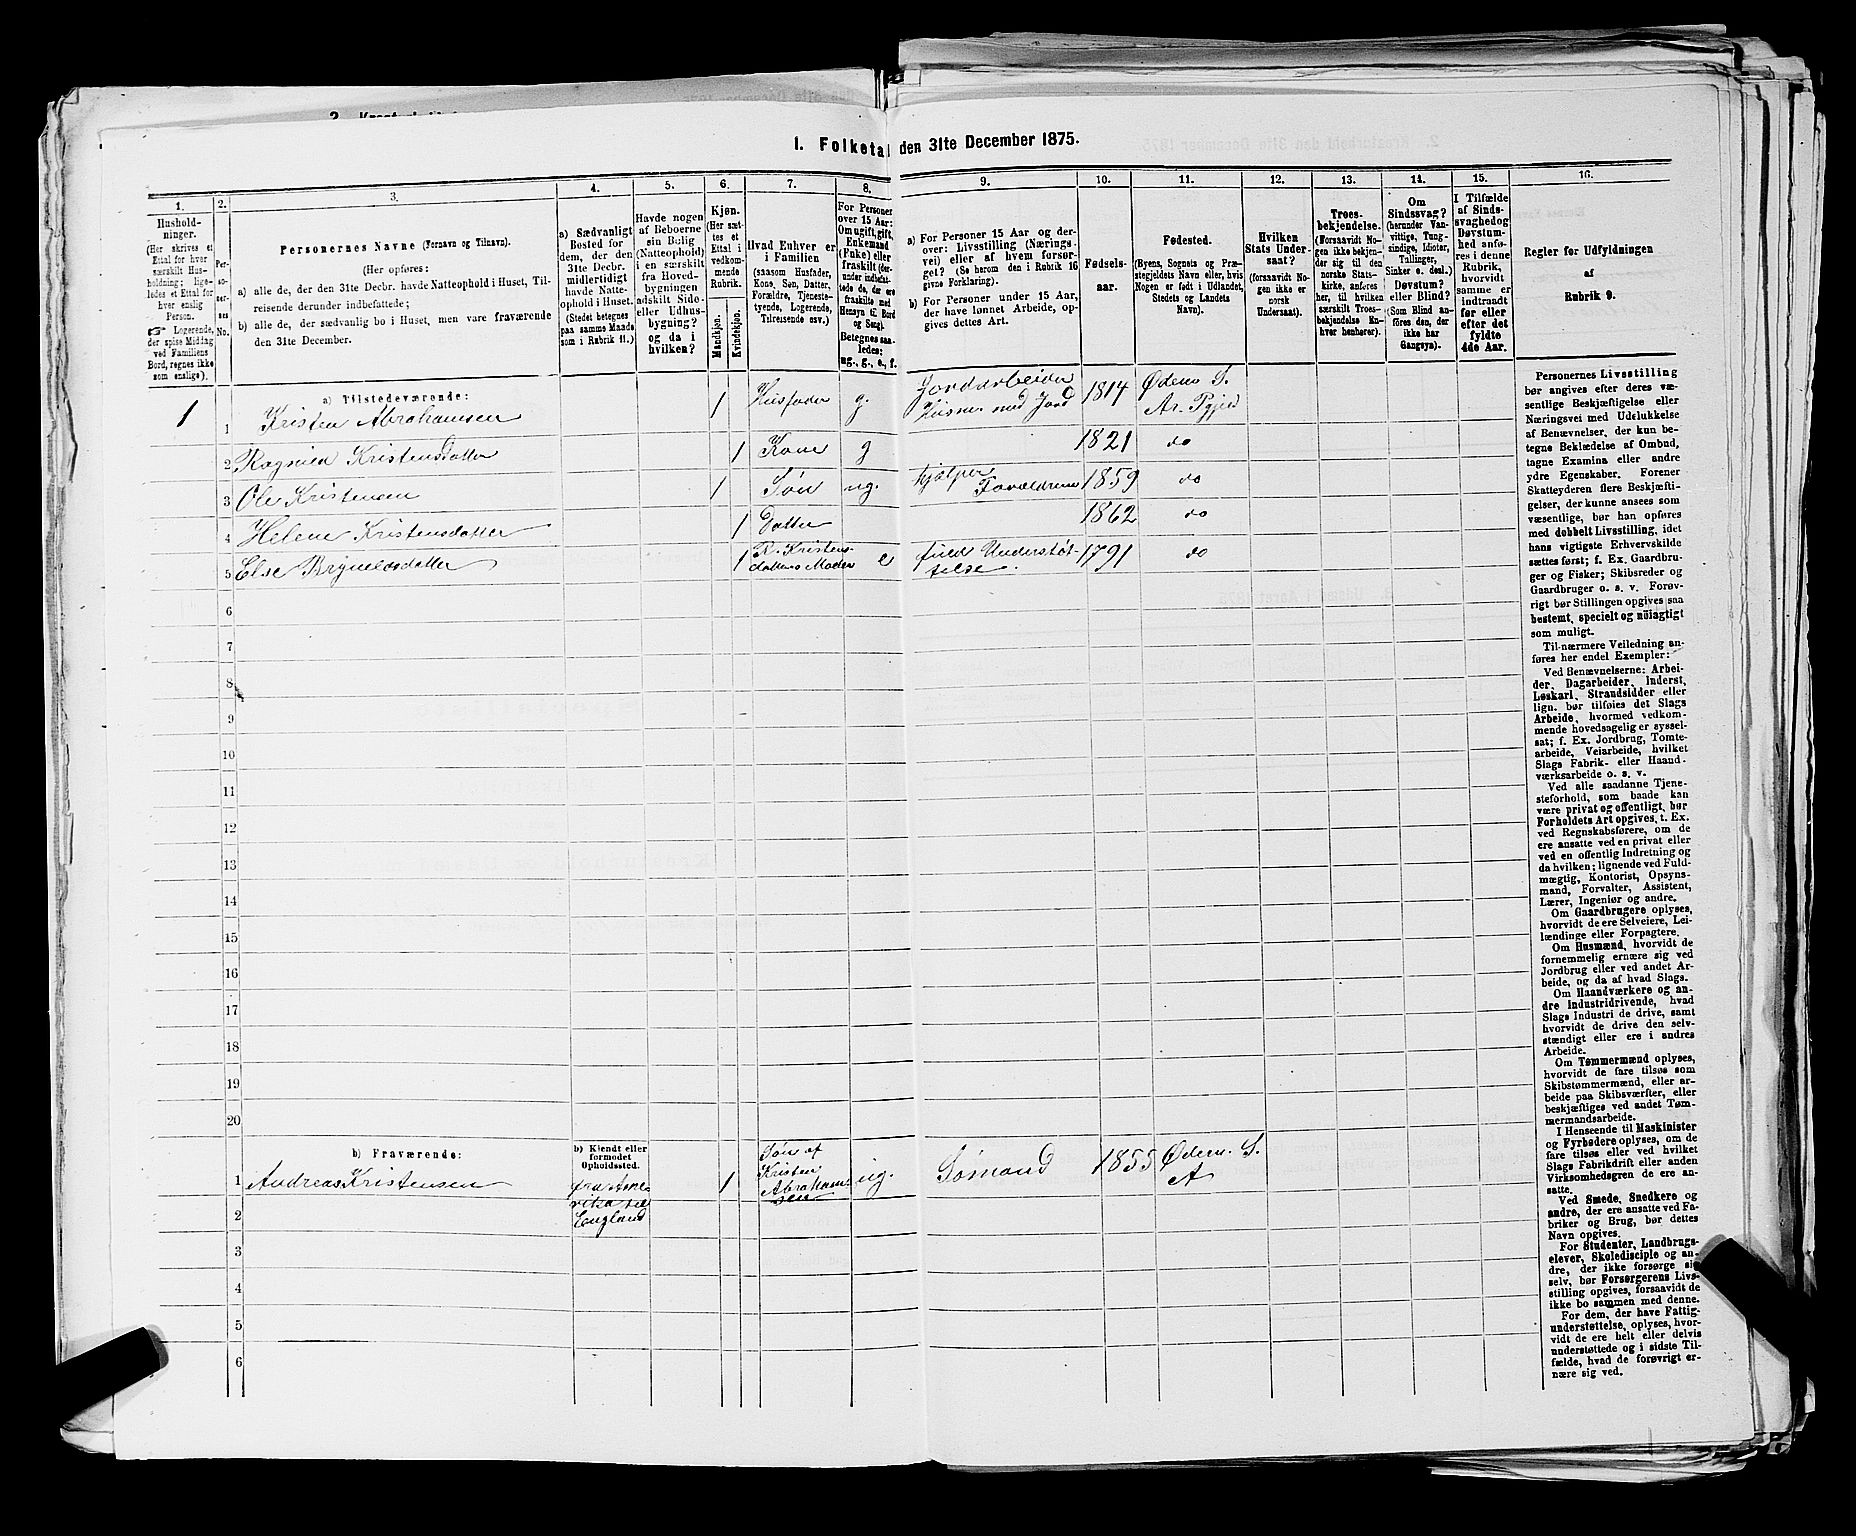 1. Folketal den 31te December 1875.
1.
Hushold-
ninger.
(Her skrives et
Ettal for hver
særskilt Hus-
holdning; lige-
ledes et Ettal for
hver enslig
Person.
☞ Logerende,
der spise Middag
ved Familiens
Bord, regnes ikke
som enslige).
2.
Per-
so-
ner-
nes
No.
3.
Personernes Navne (Fornavn og Tilnavn).
(Her opføres:
a) alle de, der den 31te Decbr. havde Natteophold i Huset, Til-
reisende derunder indbefattede;
b) alle de, der sædvanlig bo i Huset, men vare fraværende
den 31te December.
4.
a) Sædvanligt
Bosted for
dem, der den
31te Decbr.
midlertidigt
havde Natte-
ophold i Huset.
(Stedet betegnes
paa samme Maade
som i Rubrik 11.)
5.
Havde nogen
af Beboerne
sin Bolig
(Natteophold)
i en særskilt
fra Hoved-
bygningen
adskilt Side-
eller Udhus-
bygning?
og da i
hvilken?
6.
Kjøn.
(Her sæt-
tes et
Ettal i
vedkom-
mende
Rubrik.
Mandkjøn.
Kvindekjøn.
7.
Hvad Enhver er
i Familien
(saasom Husfader,
Kone, Søn, Datter,
Forældre, Tjeneste-
tyende, Logerende,
Tilreisende osv.)
8.
For Personer
over 15 Aar:
Om ugift, gift,
Enkemand
(Enke) eller
fraskilt (der-
under indbefat-
tede de, der ere
fraskilte med
Hensyn til Bord
og Seng).
Betegnes saa-
ledes:
ug., g., e., f.
9.
a) For Personer 15 Aar og der-
over: Livsstilling (Nærings-
vei) eller af hvem forsør-
get? (Se herom den i Rubrik 16
givne Forklaring).
b) For Personer under 15 Aar,
der have lønnet Arbeide, op-
gives dettes Art.
10.
Fødsels-
aar.
11.
Fødested.
(Byens, Sognets og Præ-
stegjeldets Navn eller, hvis
Nogen er født i Udlandet,
Stedets og Landets
Navn).
12.
Hvilken
Stats Under-
saat?
(forsaavidt No-
gen ikke er
norsk
Undersaat).
13.
Troes-
bekjendelse.
(Forsaavidt No-
gen ikke bekjen-
der sig til den
norske Stats-
kirke, anføres
her, til hvilken
særskilt Troes-
bekjendelse En-
hver henhører).
14.
Om
Sindssvag?
(herunder Van-
vittige, Tung-
sindige, Idioter,
Tullinger,
Sinker o. desl.)
Døvstum?
eller Blind?
(Som Blind an-
føres den, der
ikke har
Gangsyn).
15.
I Tilfælde
af Sinds-
svaghed og
Døvstum-
hed anfø-
res i denne
Rubrik,
hvorvidt
samme er
indtraadt
før eller
efter det
fyldte
4de Aar.
16.
Regler for Udfyldningen
af
Rubrik 9.
a) Tilstedeværende:
1 1 Kristen Abrahamsen 1 Husfader g. Jordarbeider Husm. med Jord 1814 Ødem S. Ar. Pgjed
2 Ragnild Kristensdatter 1 Kone g 1821 do
3 Ole Kristensen 1 Søn ug. hjælper Forældrene 1859 do
4 Helene Kristensdatter 1 Datter 1862 do
5 Else Brynildsdatter 1 K. Kristens-
datters Moder e fuld Understøt-
telse. 1791 do
6
7
8
9
10
11
12
13
14
15
16
17
18
19
20
b) Fraværende:
b) Kjendt eller
formodet
Opholdssted.
1 Andreas Kristensen fra Ame-
rika til
England 1 Søn af
Kristen
Abraham-
sen ug. Sømand 1855 Ødem. S.
A
2
3
4
5
6
Personernes Livsstilling
bør angives efter deres væ-
sentlige Beskjæftigelse eller
Næringsvei med Udelukkelse
af Benævnelser, der kun be-
tegne Beklædelse af Ombud,
tagne Examina eller andre
ydre Egenskaber. Forener
Skatteyderen flere Beskjæfti-
gelser, der kunne ansees som
væsentlige, bør han opføres
med dobbelt Livsstilling, idet
hans vigtigste Erhvervskilde
sættes først; f. Ex. Gaardbru-
ger og Fisker; Skibsreder og
Gaardbruger o. s. v. Forøv-
rigt bør Stillingen opgives saa
bestemt, specielt og nöiagtigt
som muligt.
Til nærmere Veiledning an-
føres her endel Exempler:
Ved Benævnelserne: Arbei-
der, Dagarbeider, Inderst,
Løskarl, Strandsidder eller
lign. bør tilføies det Slags
Arbeide, hvormed vedkom-
mende hovedsagelig er syssel-
sat; f. Ex. Jordbrug, Tomte-
arbeide, Veiarbeide, hvilket
Slags Fabrik- eller Haand-
værksarbeide o. s. v.
Ved alle saadanne Tjene-
steforhold, som baade kan
være privat og offentligt, bør
Forholdets Art opgives, t. Ex.
ved Regnskabsførere, om de
ere ansatte ved en privat eller
ved en offentlig Indretning og
da hvilken; lignende ved Fuld-
mægtig, Kontorist, Opsyns-
mand, Forvalter, Assistent,
Lærer, Ingeniør og andre.
Om Gaardbrugere oplyses,
hvorvidt de ere Selveiere, Lei-
lændinge eller Forpagtere.
Om Husmænd, hvorvidt de
fornemmelig ernære sig ved
Jordbrug eller ved andet Ar-
beide, og da af hvad Slags.
Om Haandværkere og an-
dre Industridrivende, hvad
Slags Industri de drive, samt
hvorvidt de drive den selv-
stændigt eller ere i andres
Arbeide.
Om Tømmermænd oplyses,
hvorvidt de fare tilsøs som
Skibstømmermænd, eller ar-
beide paa Skibsværfter, eller
beskjæftiges ved andet Tøm-
mermandsarbeide.
I Henseende til Maskinister
og Fyrbødere oplyses, om de
fare tilsøs eller ved hvilket
Slags Fabrikdrift eller anden
Virksomhedsgren de ere an-
satte.
Ved Smede, Snedkere og
andre, der ere ansatte ved Fa-
briker og Brug, bør dettes
Navn opgives.
For Studenter, Landbrugs-
elever, Skoledisciple og an-
dre, der ikke forsørge sig
selv, bør Forsørgerens Livs-
stilling opgives, forsaavidt de
ikke bo sammen med denne.
For dem, der have Fattig-
understøttelse, oplyses, hvor-
vidt de ere helt eller delvis
understøttede og i sidste Til-
fælde, hvad de forøvrigt er-
nære sig ved.